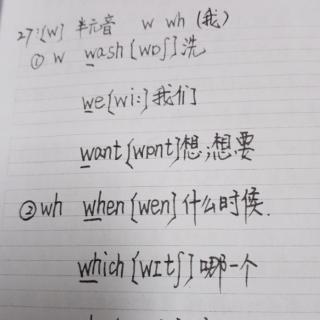 27:[w] 半元音 w wh (我)
① w wash [wɒʃ] 洗
we [wi:] 我们
want [wɒnt] 想;想要
② wh when [wen] 什么时候.
which [wɪtʃ] 哪一个